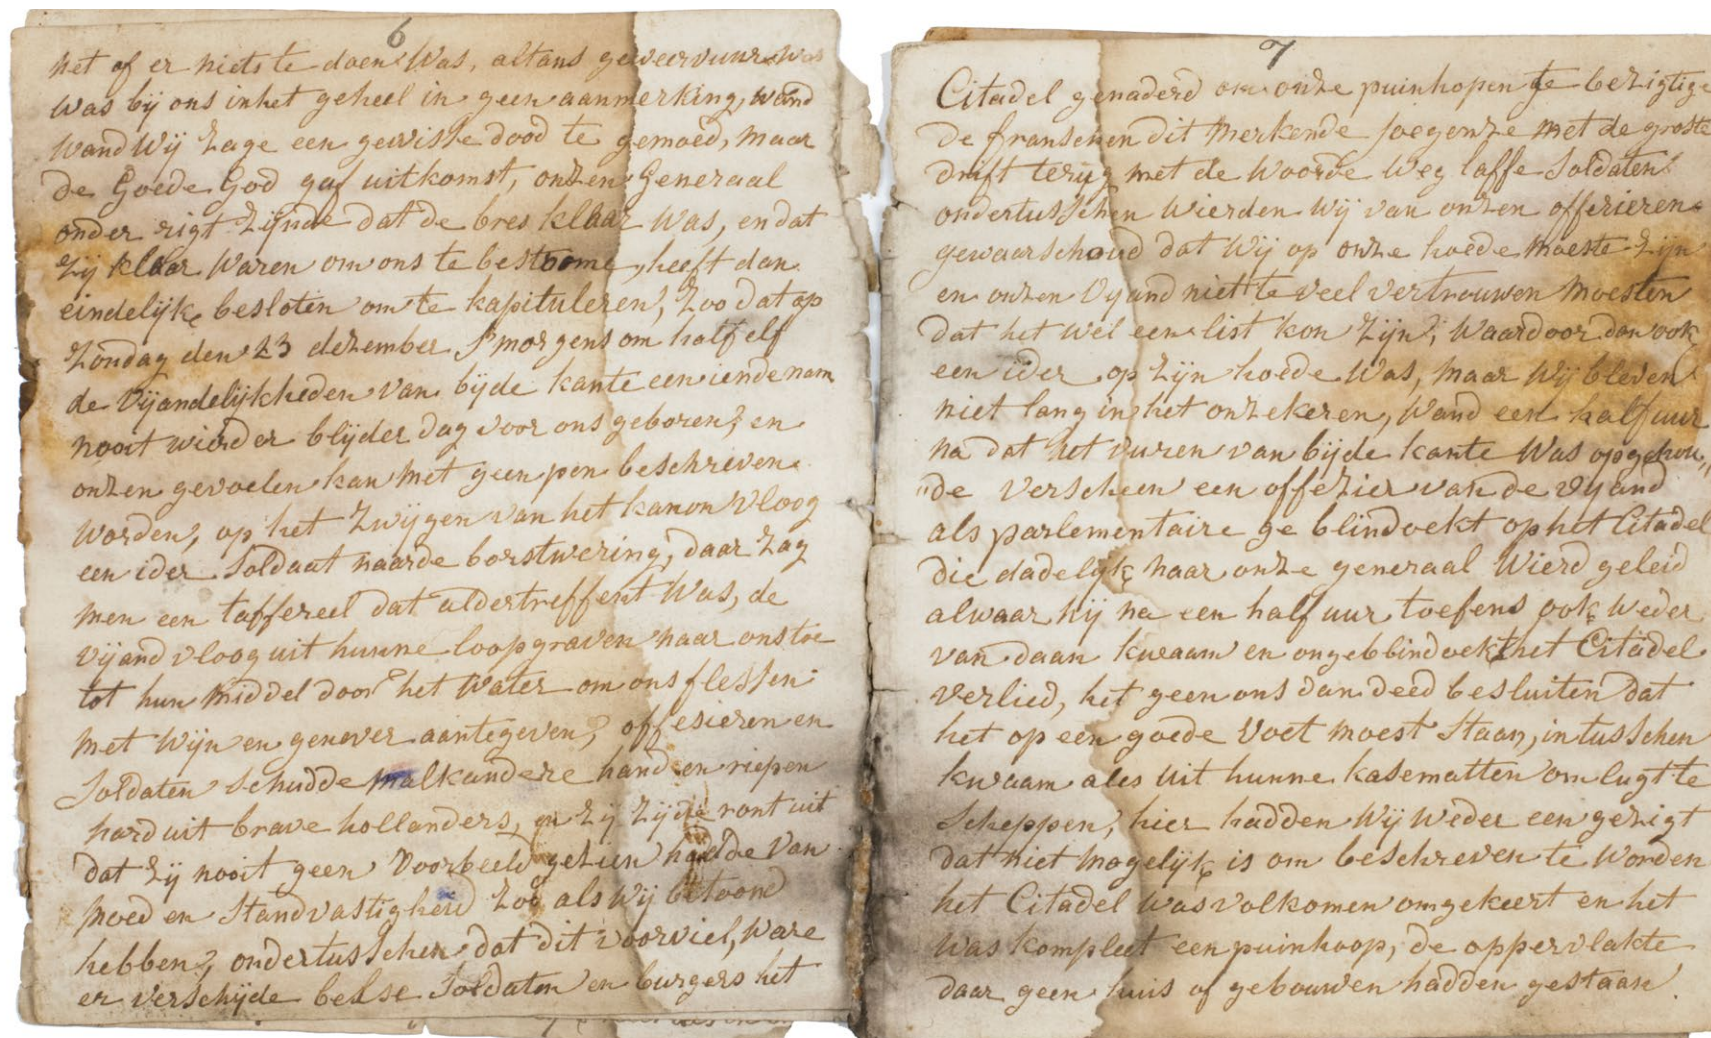 6
net of er niets te doen Was, altans geweervuur Was
Was bij ons inhet geheel in geen aanmerking, wand
Wand Wij Zage een gewisse dood te gemoed, maar
de Goede God gaf uitkomst, onzen Generaal
onder rigt Zijnde dat de bres klaar Was, en dat
Zij klaar Waren om ons te bestoome, heeft dan
eindelijk besloten om te kapituleren, Zoo dat op
Zondag den 23 dezember s'morgens om half elf
de Vijandelijkheden van bijde kante een iende nam
nooit wierd er blijder dag voor ons geboren, en
onzen gevoelen kan met geen pen beschreven
Worden, op het Zwijgen van het kanon Vloog
een ider Soldaat naar de borstwering, daar Zag
men een taffereel dat aldertreffent Was, de
vijand vloog uit hunne loopgraven naar ons toe
tot hun middel door het Water om ons flessen
met Wijn en genever aantegeven, offesieren en
Soldaten schudde malkandere hand en riepen
hard uit brave hollanders, en Zij Zijde ront uit
dat Zij nooit geen Voorbeeld gezien hadde van
moed en Standvastigheid Zoo als Wij betoond
hebben, ondertusschen dat dit voorviel, Ware
er verschijde belse Soldaten en burgers het
7
Citadel genaderd om onze puinhopen te bezigtige
De fransenen dit Merkende joegen ze met de groste
drift terug met de Woorde Weg laffe Soldaten
ondertusschen Wierden Wij van onzen offerieren
gewaarschoud dat Wij op onze hoede moeste Zijn
en onzen Vyand niet te veel vertrouwen moesten
dat het wel een list kon Zijn, Waardoor dan ook
een ider op Zijn hoede Was, maar Wij bleven
niet lang in het onzekeren, Wand een half uur
na dat het vuren van bijde kante Was opgehou,,
"de verscheen een offezier van de vyand
als parlementaire ge blindoekt op het Citadel
die dadelyk naar onze generaal Wierd geleid
alwaar hij na een half uur toefens ook Weder
van daan kwaam en ongebblindoekt het Citadel
verlied, het geen ons dan deed besluiten dat
het op een goede Voet moest Staan, intusschen
kwaam ales uit hunne kasematten om lugt te
Scheppen, hier hadden Wij Weder een gezigt
dat niet mogelijk is om beschreven te Worden
het Citadel Was volkomen omgekeert en het
Was kompleet een puinhoop, de oppervlakte
daar geen huis of gebouwen hadden gestaan